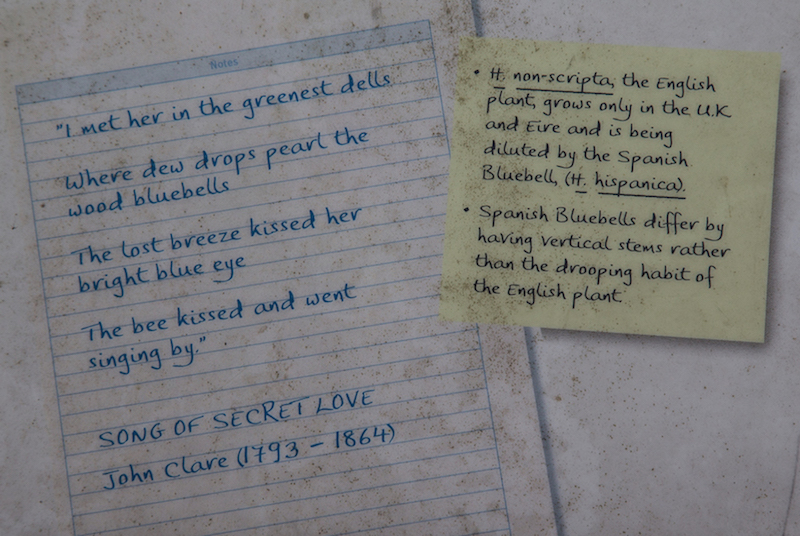 Notes
"I met her in the greenest dells
Where dew drops pearl the
wood bluebells
The lost breeze kissed her
bright blue eye
The bee kissed and went
singing by."
SONG OF SECRET LOVE
John Clare (1793 - 1864)
• H. non-scripta, the English
plant, grows only in the U.K
and Eire and is being
diluted by the Spanish
Bluebell, (H. hispanica).
• Spanish Bluebells differ by
having vertical stems rather
than the drooping habit of
the English plant.